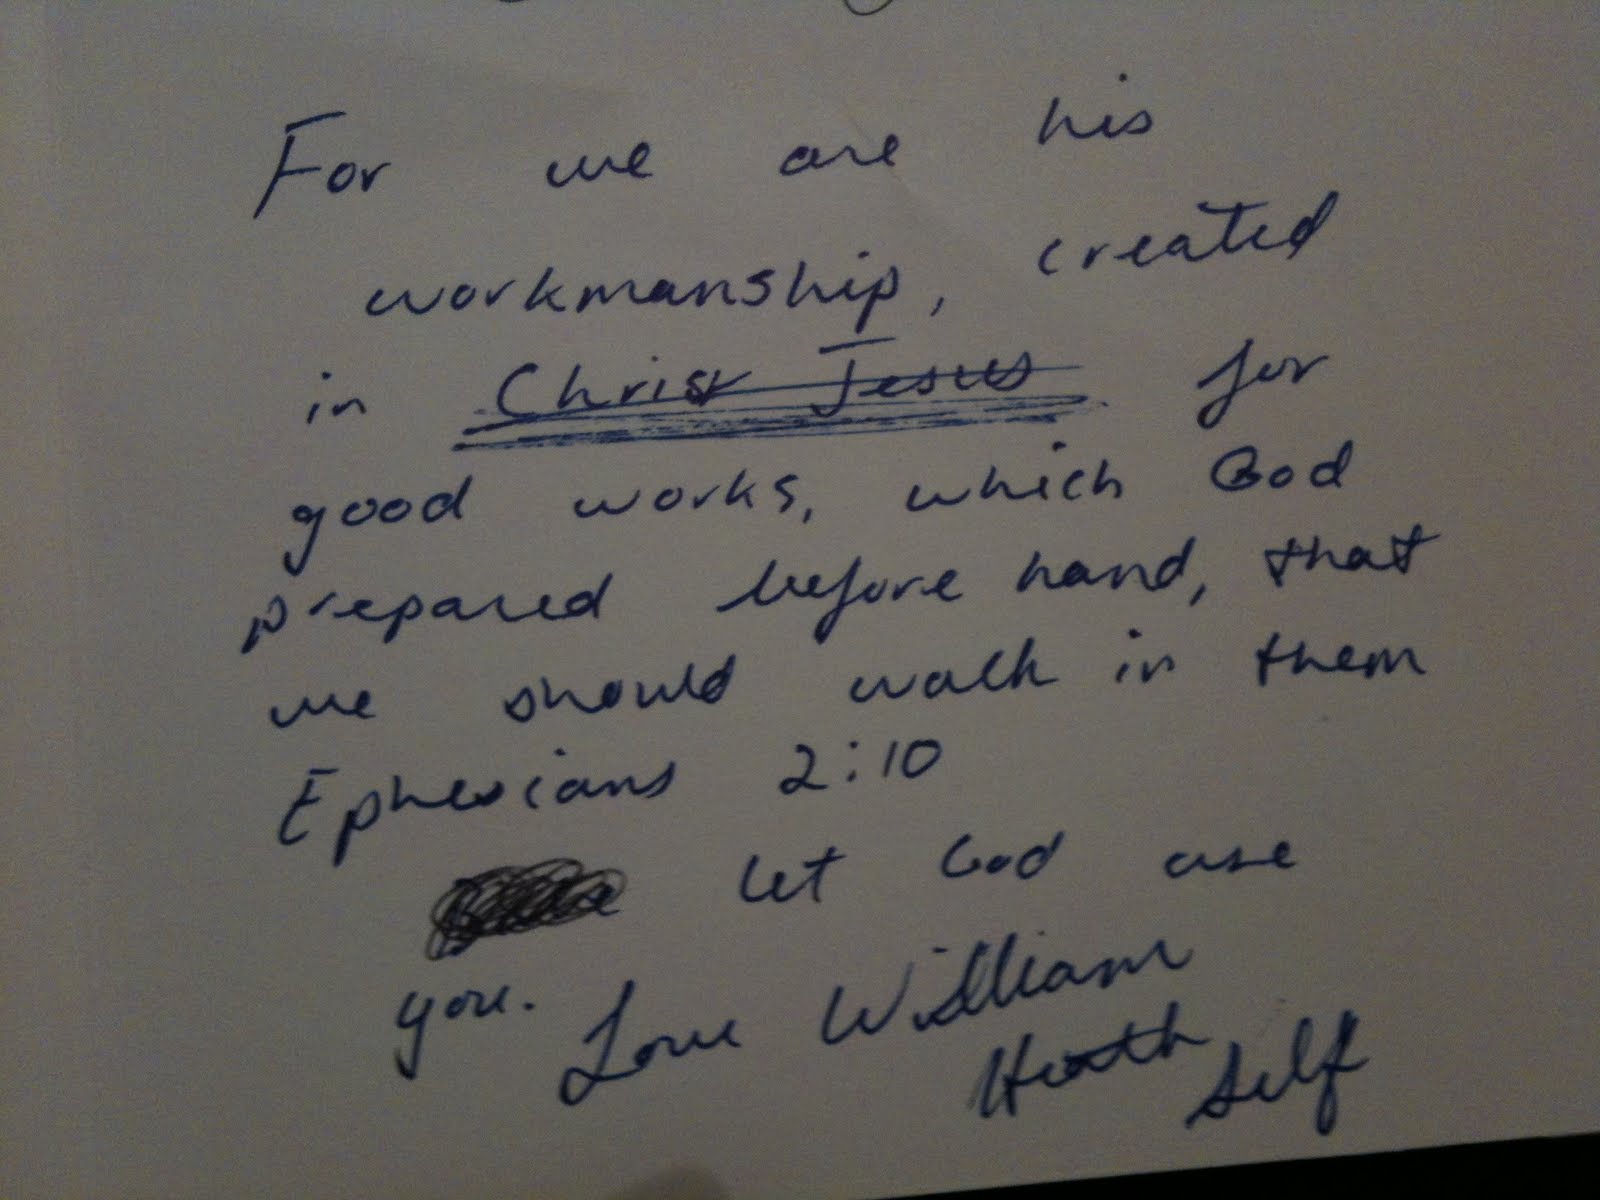 For we are his
workmanship, created
in Christ Jesus for
good works, which God
prepared before hand, that
we should walk in them
Ephesians 2:10
let God use
you. Love William
Heath Self